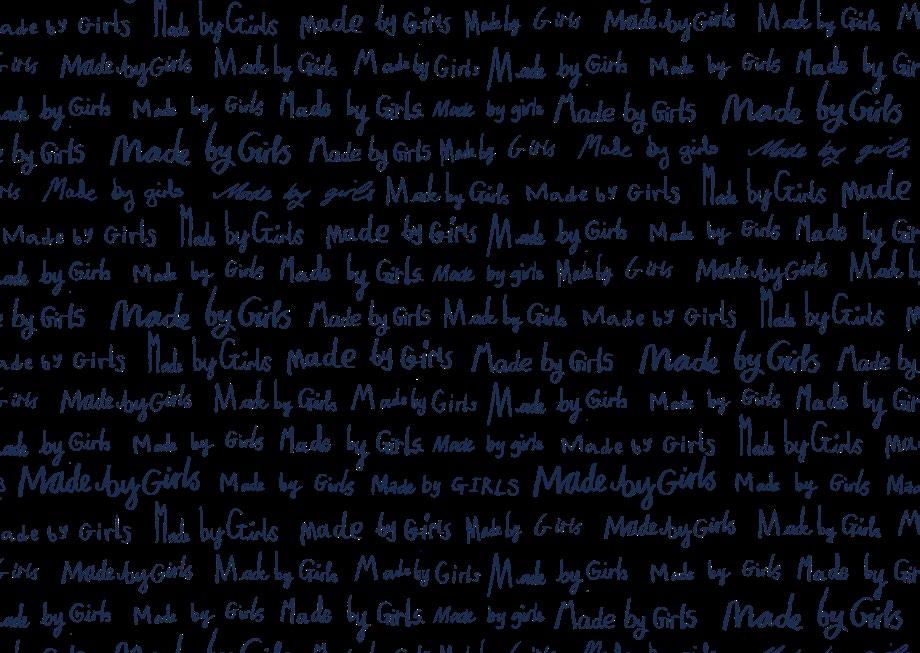 made by Girls Made by Girls made by Girls Made by Girls Made by Girls Made by Girls
Girls Made by Girls Made by Girls Made by Girls Made by Girls Made by Girls Made by Gir
made by Girls Made by Girls Made by Girls Made by girls Made by Girls Made by Girls
by Girls Made by Girls Made by Girls Made by Girls Made by girls Made by girls
rls Made by girls Made by girls Made by Girls Made by Girls Made by Girls made
Made by Girls Made by Girls made by Girls Made by Girls Made by Girls Made by Gir
ade by Girls Made by Girls Made by Girls. Made by girls Made by Girls Made by Girls Made b
by Girls Made by Girls Made by Girls Made by Girls Made by Girls Made by Girls
ade by Girls Made by Girls made by Girls Made by Girls Made by Girls Made by
Girls Made by Girls Made by Girls Made by Girls Made by Girls Made by Girls Made by Gir
ade by Girls Made by Girls Made by Girls. Made by girls Made by Girls Made by Girls ma
s Made by Girls Made by Girls Made by GIRLS Made by Girls Made by Girls Ma
ade by Girls Made by Girls made by Girls Made by Girls Made by Girls Made by Girls
Girls Made by Girls Made by Girls Made by Girls Made by Girls Made by Girls Made by Gir
ade by Girls Made by Girls Made by Girls. Made by girls Made by Girls Made by Girls